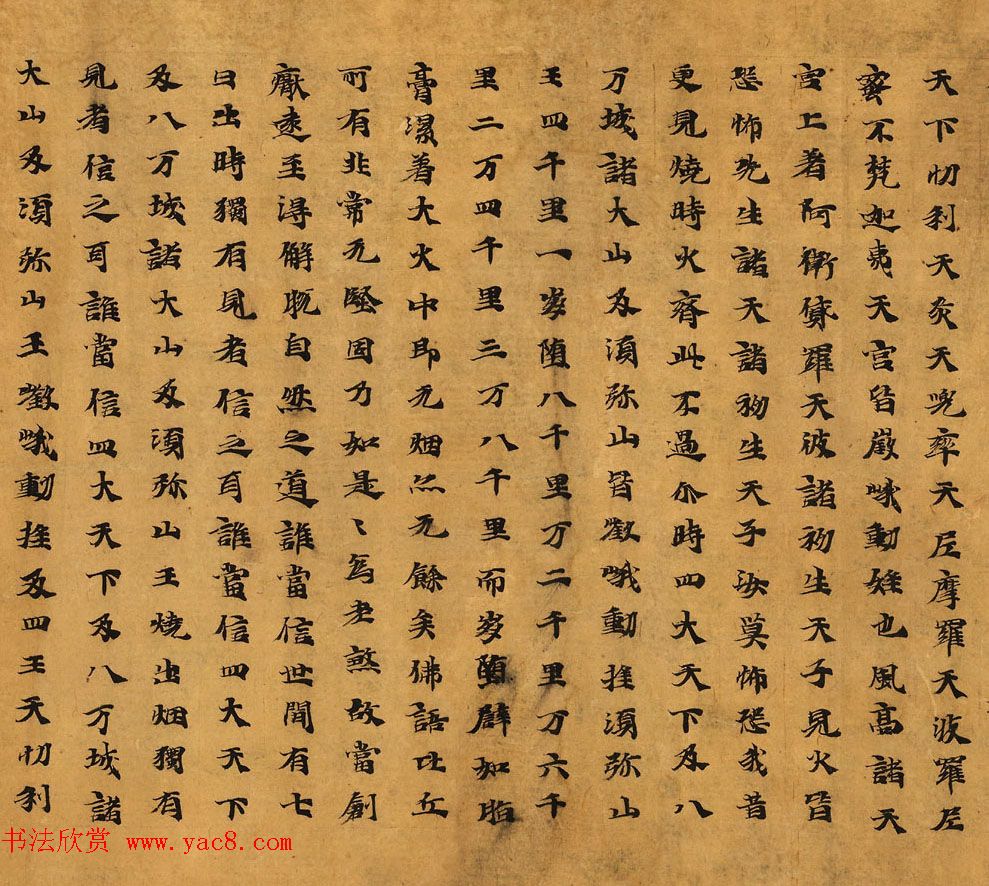 天下忉利天炎天兜率天尼摩羅天波羅尼
蜜不梵迦夷天宮皆嶔峨動挓也風髙諸天
宮上着阿衛貨羅天彼諸初生天子見火皆
恐怖先生諸天語初生天子汝莫怖恐我昔
更見燒時火齊此不過尒時四大天下及八
万城諸大山及須弥山皆嶔峨動挓須弥山
王四千里一岁堕八千里万二千里万六千
里二万四千里三万八千里而岁堕辟如脂
膏着大火中即无烟炁无餘矣佛語比丘
所有非常无堅固乃如是〻為老煞故當創
厭遠至得解脱自然之道誰當信世間有七
日出時獨有見者信之耳誰當信四大天下
及八万城諸大山及須弥山王燒出烟獨有
見者信之耳誰當信四大天下及八万城諸
大山及須弥山王嶔峨動挓及四王天忉利
书法欣赏 www.yac8.com